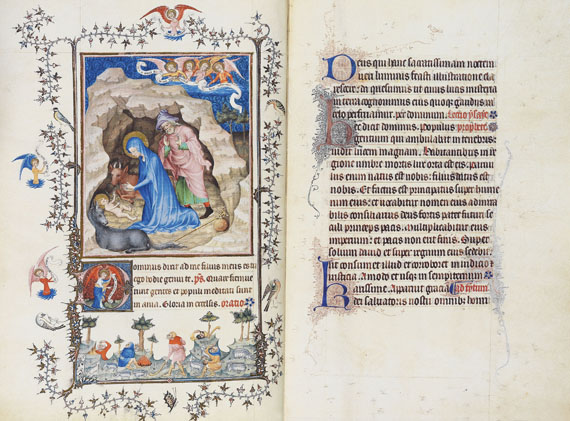 ominus dixit ad me filius meus es tu
ego hodie genui te. ps. Quare fremue
runt gentes et populi meditati sunt
in ania. Gloria in excelsis. oratio
Deus qui hanc sacratissimam noctem
veri luminis fecisti illustratione cla
rescere: da quesumus ut cuius lucis misteria
in terra cognovimus eius quoque gaudiis in
celo perfruamur. per dominum. Lectio ysaye
Hec dicit dominus. Populus prophete
gentium qui ambulabat in tenebris:
vidit lucem magnam. Habitantibus in re
gione umbre mortis lux orta est eis. parvu
lus enim natus est nobis: filius datus est
nobis. Et factus est principatus super hume
rum eius: et vocabitur nomen eius admira
bilis consiliarius deus fortis pater futuri se
culi princeps pacis. Multiplicabitur eius
imperium: et pacis non erit finis. Super
solium david et super regnum eius sedebit
ut confirmet illud et corroboret in iudicio et
iusticia. Amodo et usque in sempiternum
karissime. Apparuit gracia Ad tytum
dei salvatoris nostri omnibus homi